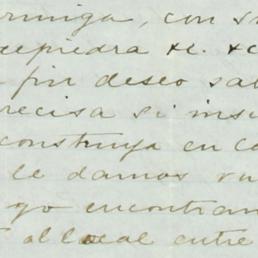 con s
piedra &. &c
fin deseo sab
recisa si ins
construya en co
le damos ru
yo encontran
al local entre